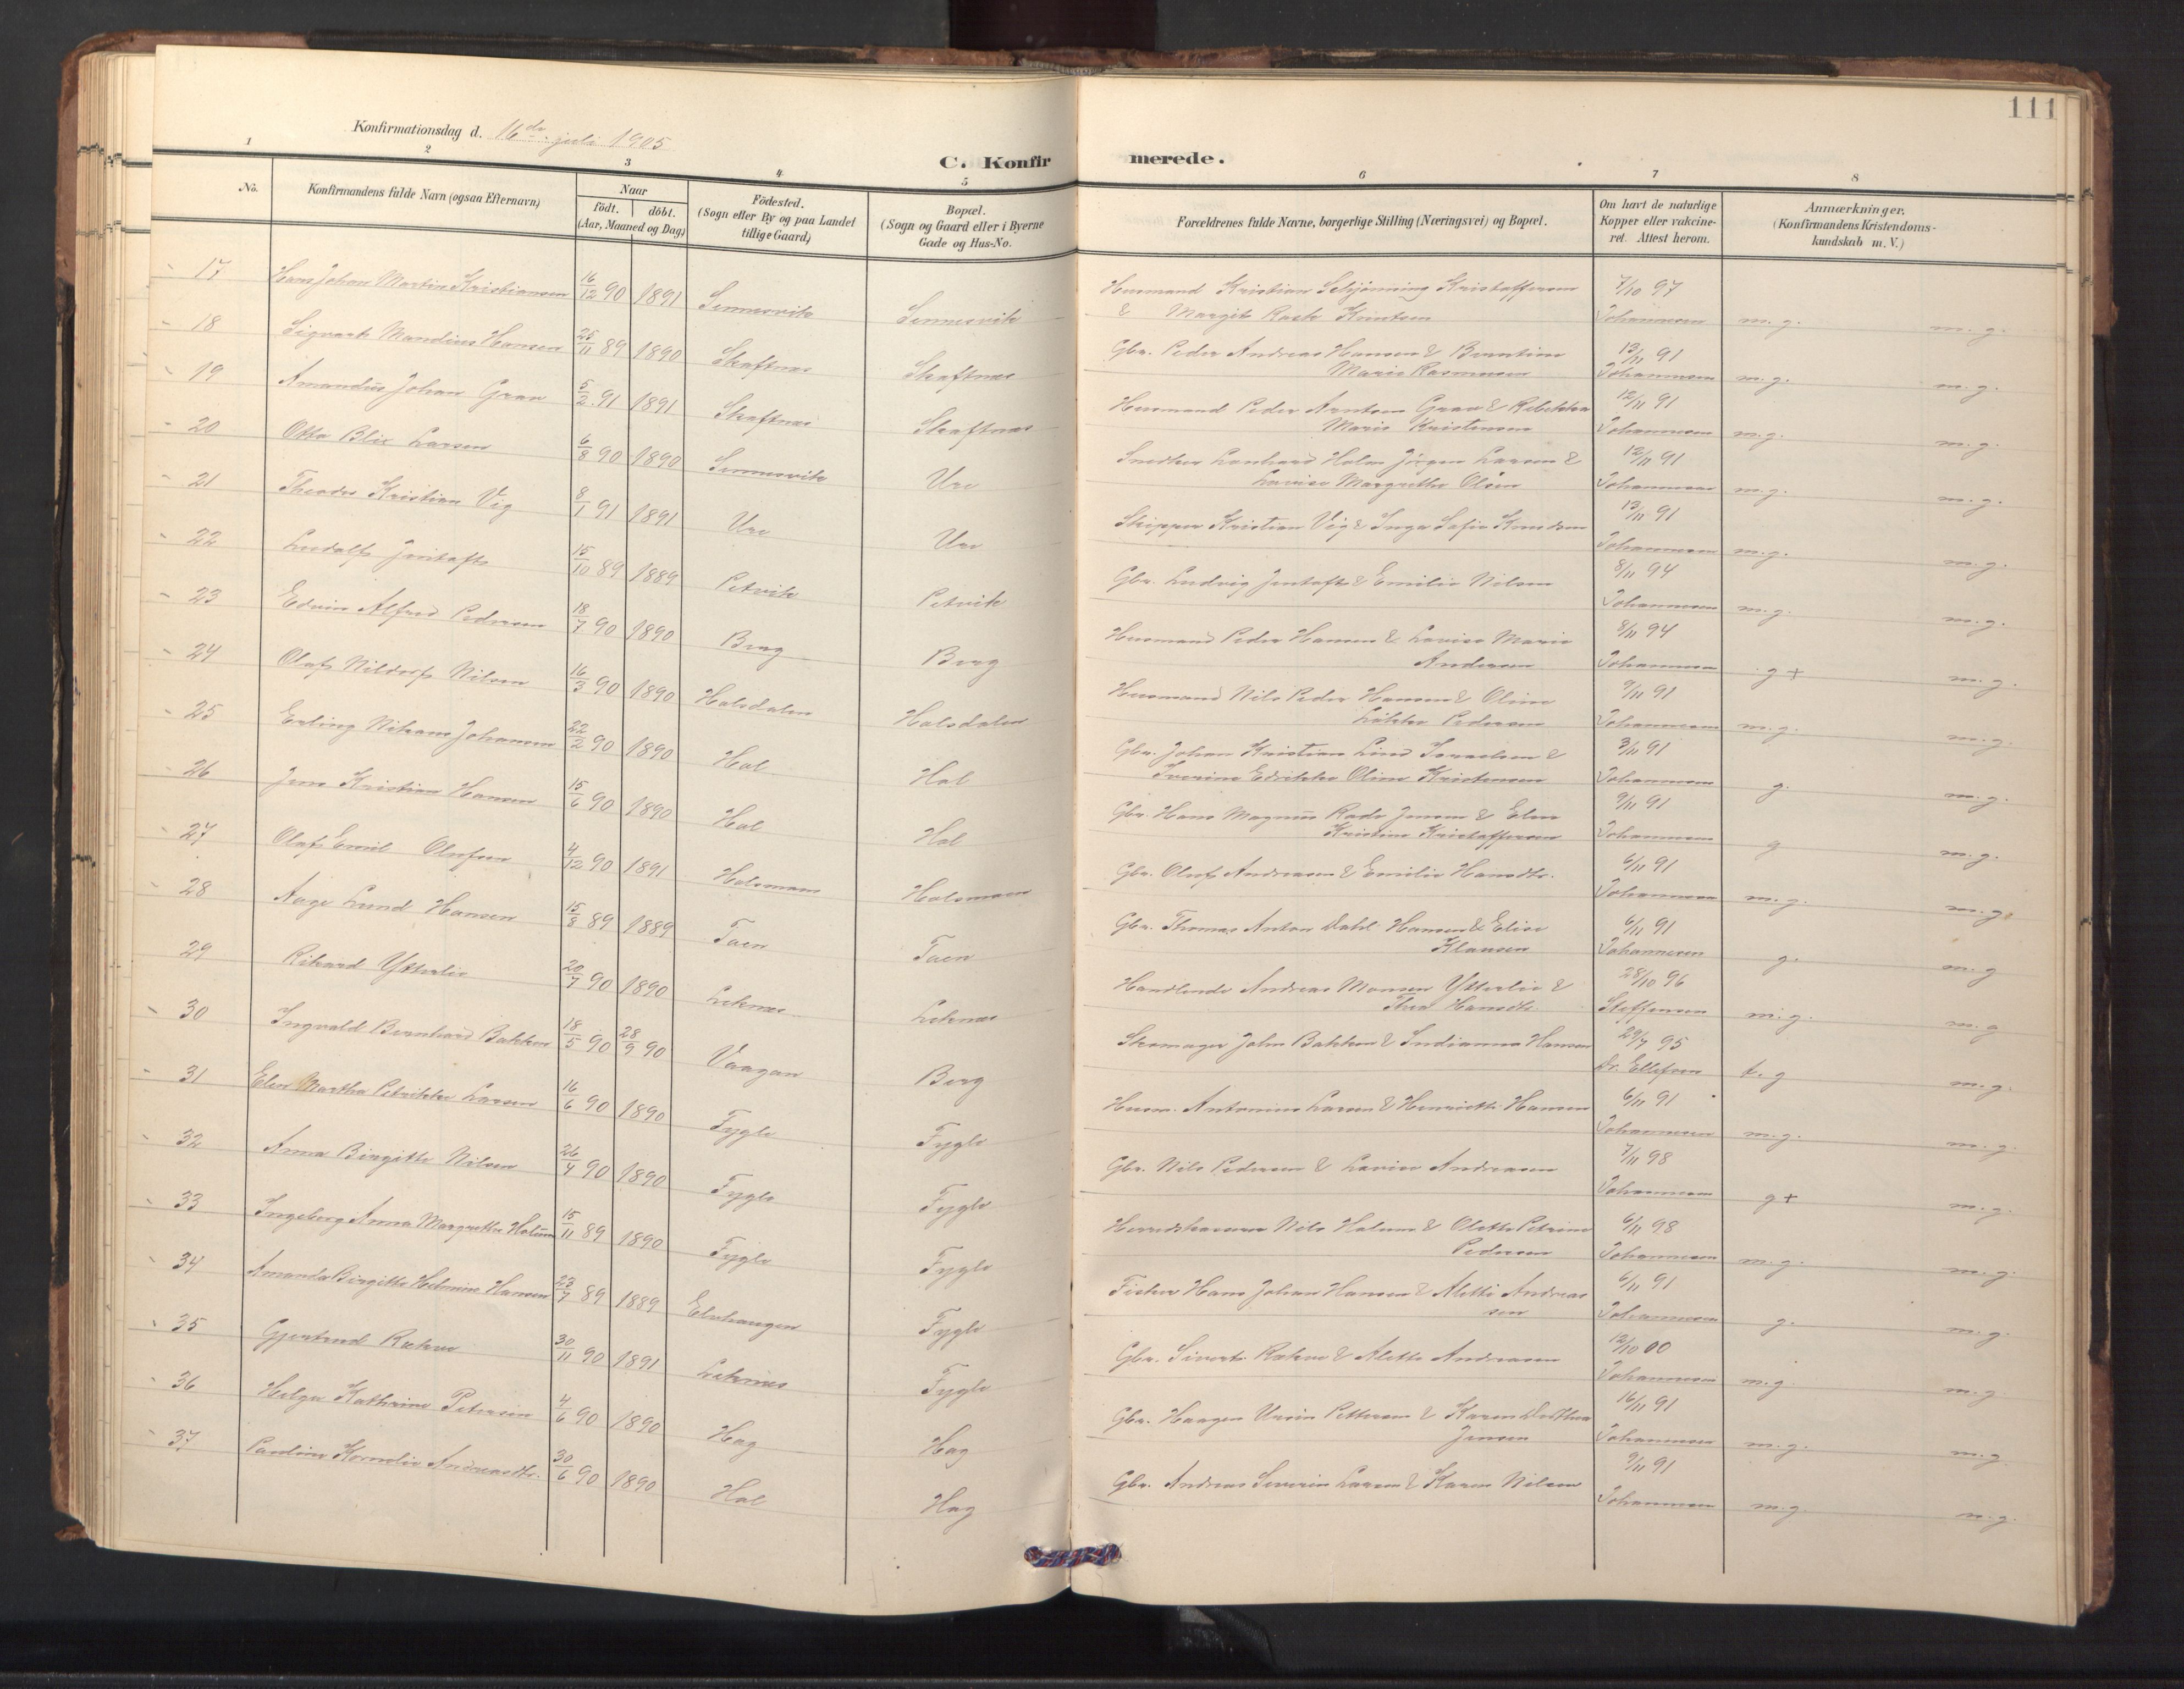 111
Konfirmationsdag d. 16de juli 1905
C. Konfirmerede.
1 2 3 4 5 6 7 8
No. Konfirmandens fulde Navn (ogsaa Efternavn) Naar født. døbt. (Aar, Maaned og Dag) Fødested. (Sogn eller By og paa Landet tillige Gaard) Bopæl. (Sogn og Gaard eller i Byerne Gade og Hus-No. Forældrenes fulde Navne, borgerlige Stilling (Næringsvei) og Bopæl. Om havt de naturlige Kopper eller vakcineret. Attest herom. Anmærkninger. (Konfirmandens Kristendomskundskab m. V.)
17 Hans Johan Martin Kristiansen 16/12 90 1891 Sennesvik Sennesvik Husmand Kristian Schjønning Kristoffersen 7/10 97
& Margit Rask Knutsen Johannesen m.g. m.g.
18 Sigvart Mandius Hansen 25/11 89 1890 Skaftnæs Skaftnæs Gbr. Peder Andreas Hansen & Berntine 13/11 91
Marie Rasmussen Johannesen m.g. m.g.
19 Amandus Johan Grav 5/2 91 1891 Skaftnæs Skaftnæs Husmand Peder Arntsen Grav & Rebekka 12/11 91
Marie Kristensen Johannesen m.g. m.g.
20 Otto Blix Larsen 6/8 90 1890 Sennesvik Ure Snedker Lenhard Holm Jørgen Larsen & 12/11 91
Lovise Margrethe Olsen Johannesen m.g. m.g.
21 Theodor Kristian Vig 8/1 91 1891 Ure Ure Skipper Kristian Vig & Inga Sofie Knudsen 13/11 91
Johannesen m.g. m.g.
22 Ludolf Jentoft 15/10 89 1889 Petvik Petvik Gbr. Ludvig Jentoft & Emilie Nilsen 8/11 94
Johannesen m.g. m.g.
23 Edvin Alfred Pedersen 18/7 90 1890 Berg Berg Husmand Peder Hansen & Lovise Marie 8/11 94
Andersen Johannesen g+ m.g.
24 Olaf Nildorf Nilsen 16/3 90 1890 Holsdalen Holsdalen Husmand Nils Peder Hansen & Oline 9/11 91
Løkke Pedersen Johannesen m.g. m.g.
25 Erling Nikano Johansen 22/2 90 1890 Hol Hol Gbr. Johan Kristian Lind Israelsen & 3/11 91
Iverine Edrikke Oline Kristensen Johannesen g. m.g.
26 Jens Kristian Hansen 15/6 90 1890 Hol Hol Gbr. Hans Magnus Rade Jensen & Elen 9/11 91
Kristine Kristoffersen Johannesen g m.g.
27 Olaf Emil Olufsen 4/12 90 1891 Holsmoen Holsmoen Gbr. Oluf Andreasen & Emilie Hansdtr. 6/11 91
Johannesen m.g. m.g.
28 Aage Lund Hansen 15/8 89 1889 Taen Taen Gbr. Thomas Anton Dahl Hansen & Elise 6/11 91
Klausen Johannesen g. m.g
29 Rikard Ytterlie 20/7 90 1890 Leknes Leknes Handlende Andreas Monsen Ytterlie & 28/10 96
Thea Hansdtr. Steffensen m.g. m.g
30 Ingvald Bernhard Bakken 18/5 90 28/9 90 Vaagan Berg Skomager John Bakken & Indianna Hansen 29/7 95
Dr. Ellefsen t.g m.g.
31 Elen Martha Petrikke Larsen 16/6 90 1890 Fygle Fygle Husm. Antonius Larsen & Henriette Hansen 6/11 91
Johannesen m.g. m.g.
32 Anna Birgitte Nilsen 26/4 90 1890 Fygle Fygle Gbr. Nils Pedersen & Lovise Andreasen 7/11 98
Johannesen g+ m.g.
33 Ingeborg Anna Margrethe Holum 15/11 89 1890 Fygle Fygle Herredskasserer Nils Holum & Olette Petrine 6/11 98
Pedersen Johannesen m.g. m.g.
34 Amanda Birgitte Helmine Hansen 23/7 89 1889 Elvhaugen Fygle Fisker Hans Johan Hansen & Alette Andreas 6/11 91
sen Johannesen g. m.g.
35 Gjertrud Rækne 30/11 90 1891 Leknes Fygle Gbr. Sivert Rækne & Alette Andreasen 12/10 00
Johannesen m.g m.g
36 Helga Kathrine Petersen 4/6 90 1890 Hag Hag Gbr. Haagen Ursin Pettersen & Karen Dorthea 16/11 91
Jensen Johannesen m.g. m.g
37 Pauline Kornelie Andreasdtr. 30/6 90 1890 Hol Hag Gbr. Andreas Severin Larsen & Karen Nilsen 9/11 91
Johannesen m.g m.g.